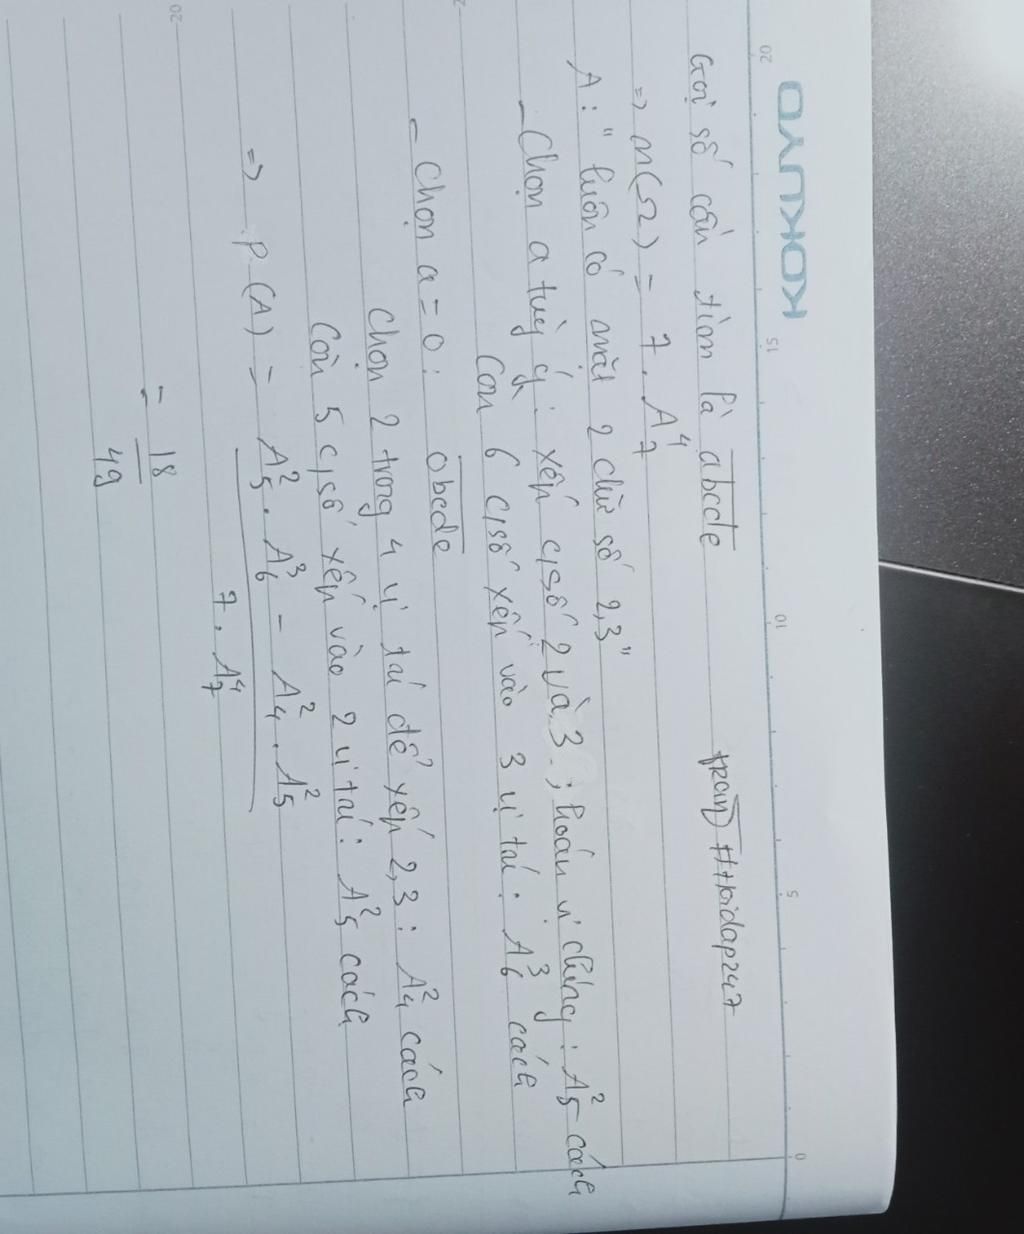 KOKUYO
20 15 10 5 0
Gọi số cần tìm là abcde
trangHHoidap247
=> n(Ω) = 7. A⁴₇
A: " luôn có mặt 2 chữ số 2,3"
- Chọn a tùy ý: xếp c/số 2 và 3; hoán vị chúng: A²₅ cách
Còn 6 c/số xếp vào 3 vị trí: A³₆ cách
- Chọn a = 0: 0bcde
Chọn 2 trong 4 vị trí để xếp 2,3: A²₄ cách
Còn 5 c/số xếp vào 2 vị trí: A²₅ cách
=> P(A) = A²₅. A³₆ - A²₄. A²₅
7. A⁴₇
= 18
49
20